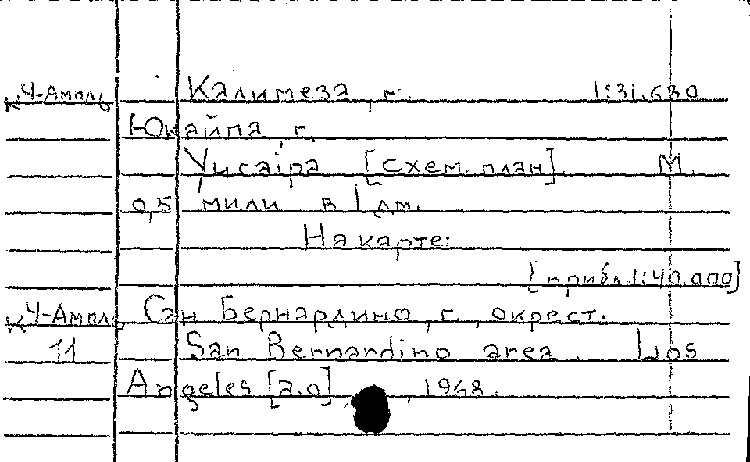 Калимеза, г. 1:31.680
К Ч-Ампл
Юкайпа, г.
Yucaipa [схем. план]. М.
0,5 мили в 1 дм.
На карте:
[прибл. 1:40.000]
К Ч-Ампл. Сан Бернардино, г., окрест.
11 San Bernardino area. Los
Angeles [a.o], 1968.